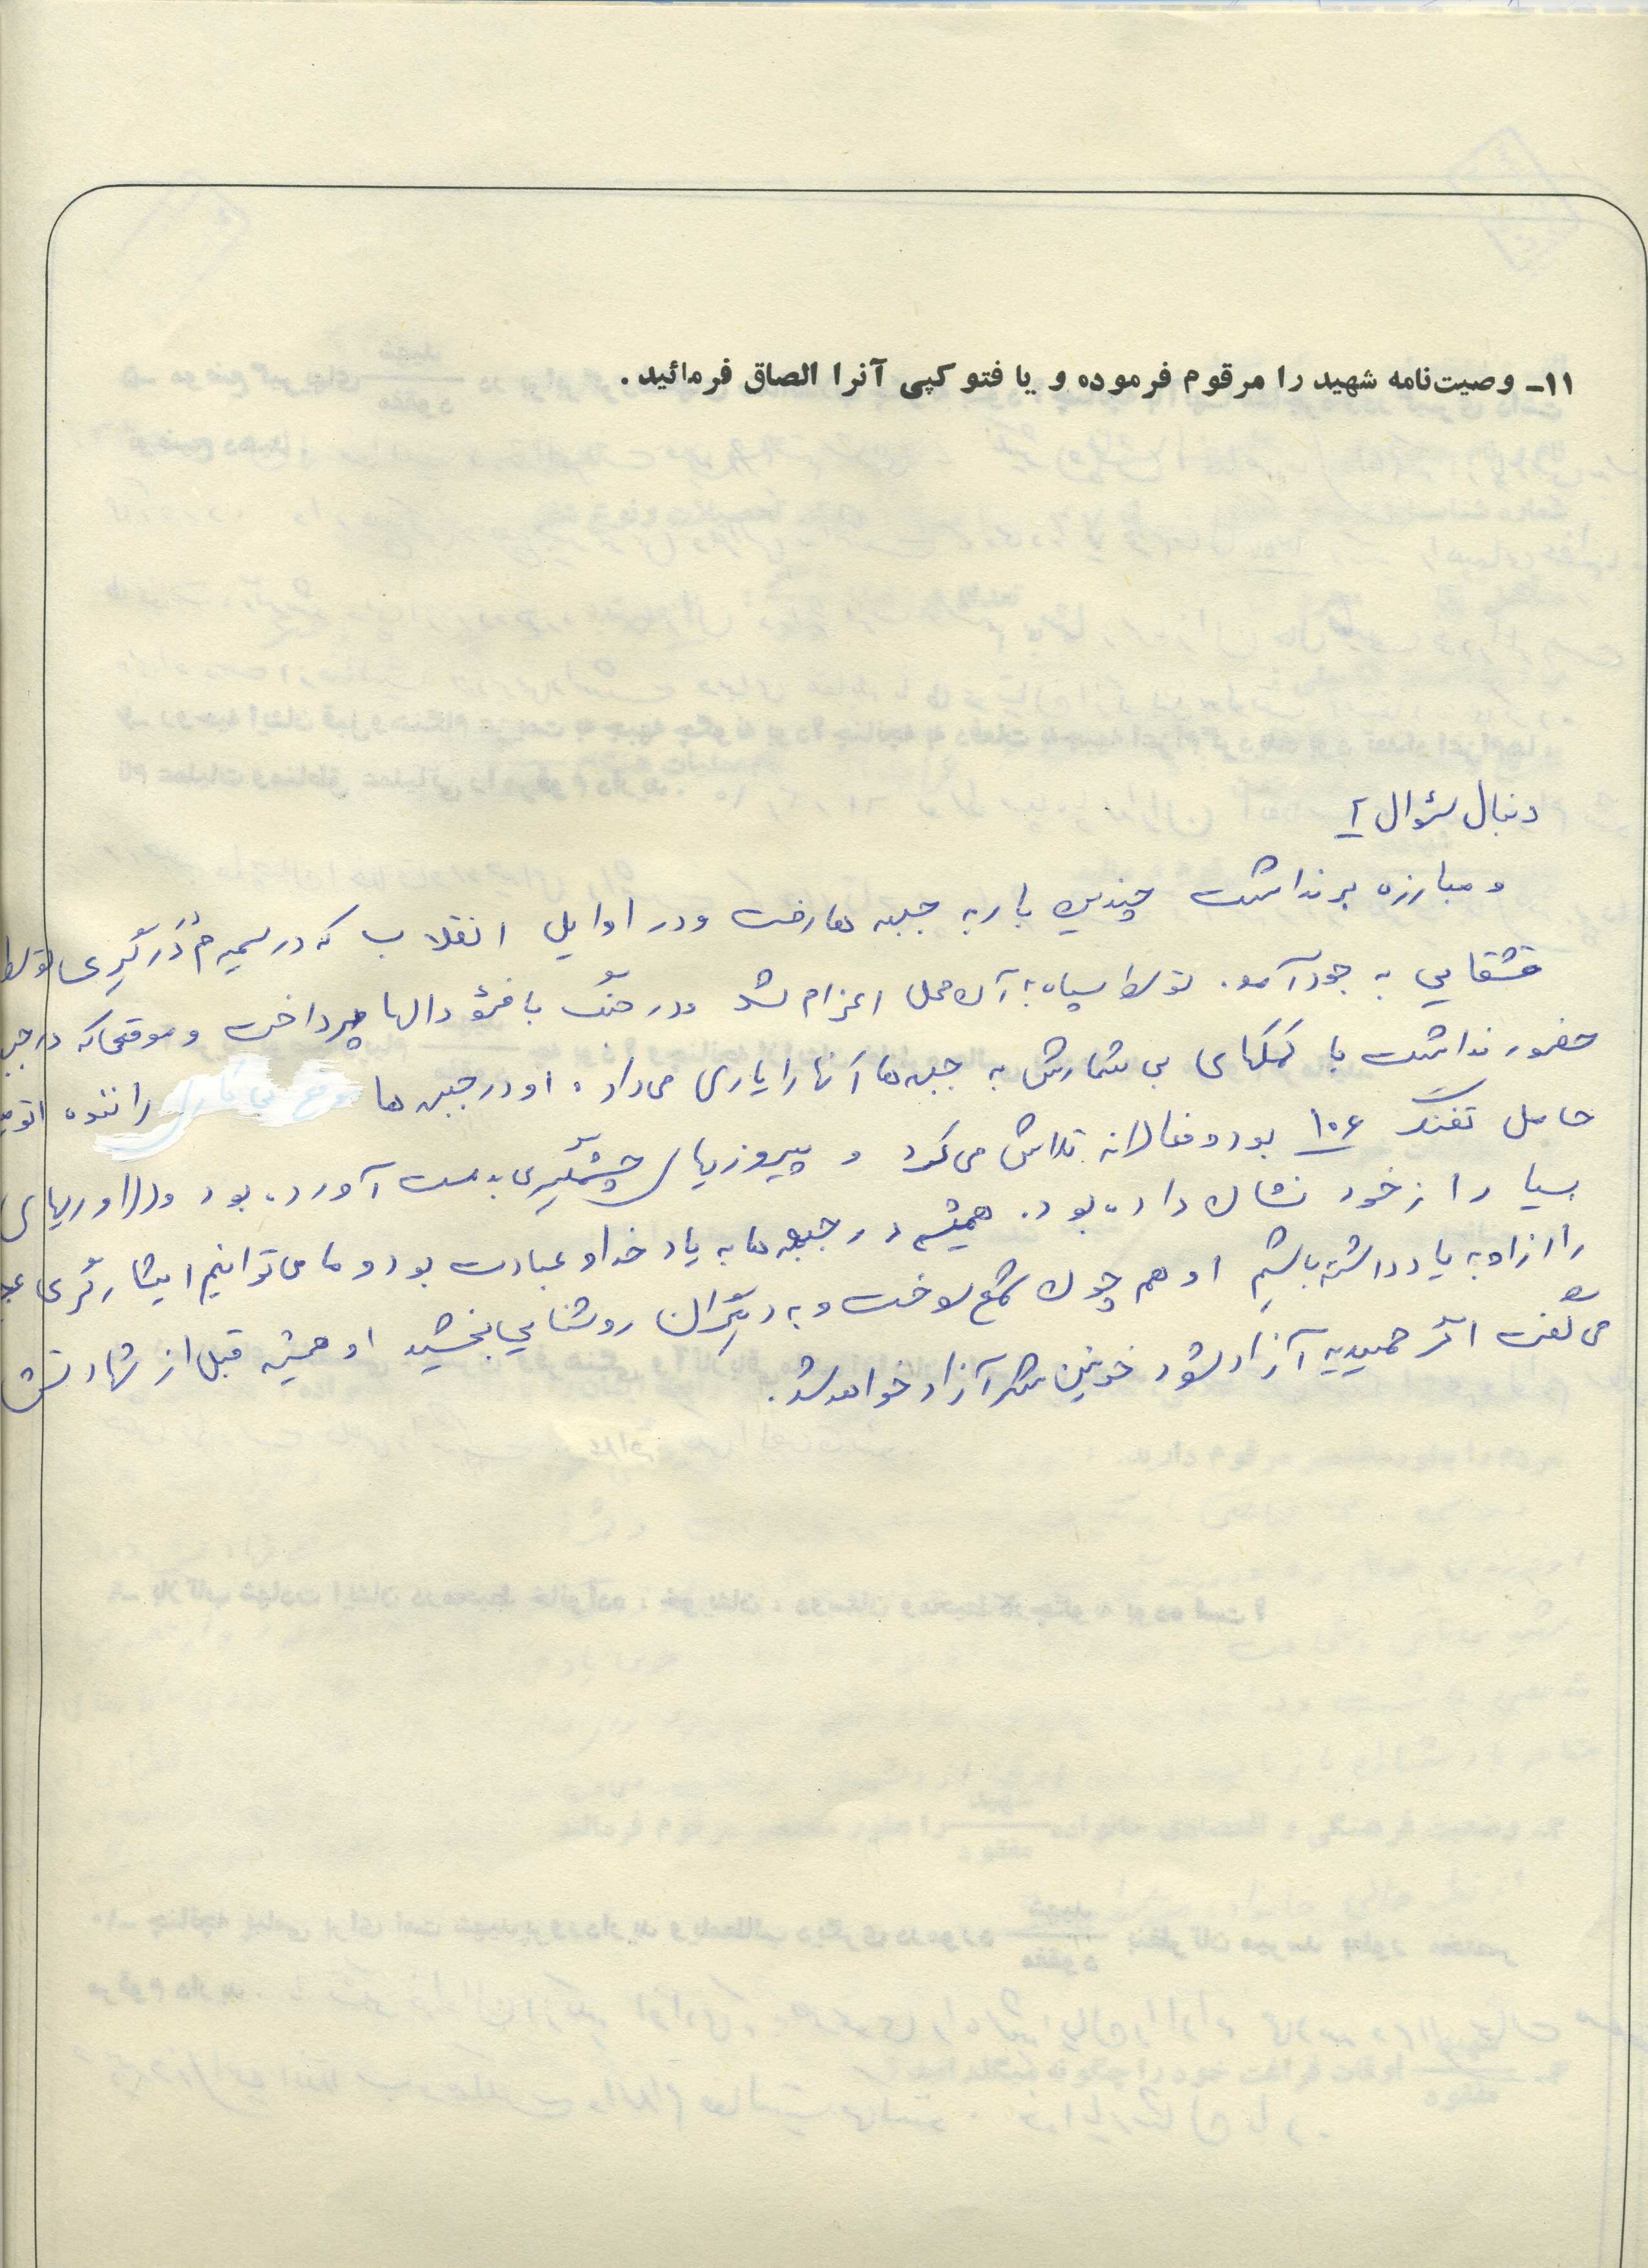 ۱۱ـ وصیت‌نامه شهید را مرقوم فرموده و یا فتوکپی آنرا الصاق فرمائید.
دنبال سؤال ۲
و مبارزه برنداشت چندین بار به جبهه ها رفت و در اوایل انقلاب که در سمیرم درگیری توسط
قشقایی به جود آمد. توسط سپاه به آن محل اعزام شد و در جنگ با فئودالها پرداخت و موقعی که در
حضور نداشت با کمکهای بی شمارش به جبهه ها آنها را یاری می داد. او در جبهه ها راننده
حامل تفنگ ۱۰۶ بود و فعالانه تلاش می کرد و پیروزیهای چشمگیری بدست آورده بود و
بسیا را از خود نشان داده بود. همیشه در جبهه ها به یاد خدا و عبادت بود و ما می توانیم ایثارگری
را از او به یاد داشته باشیم او هم چون شمع سوخت و به دیگران روشنایی بخشید او همیشه قبل از شهادتش
می گفت اگر حمیدیه آزاد شود خونین شهر آزاد خواهد شد.